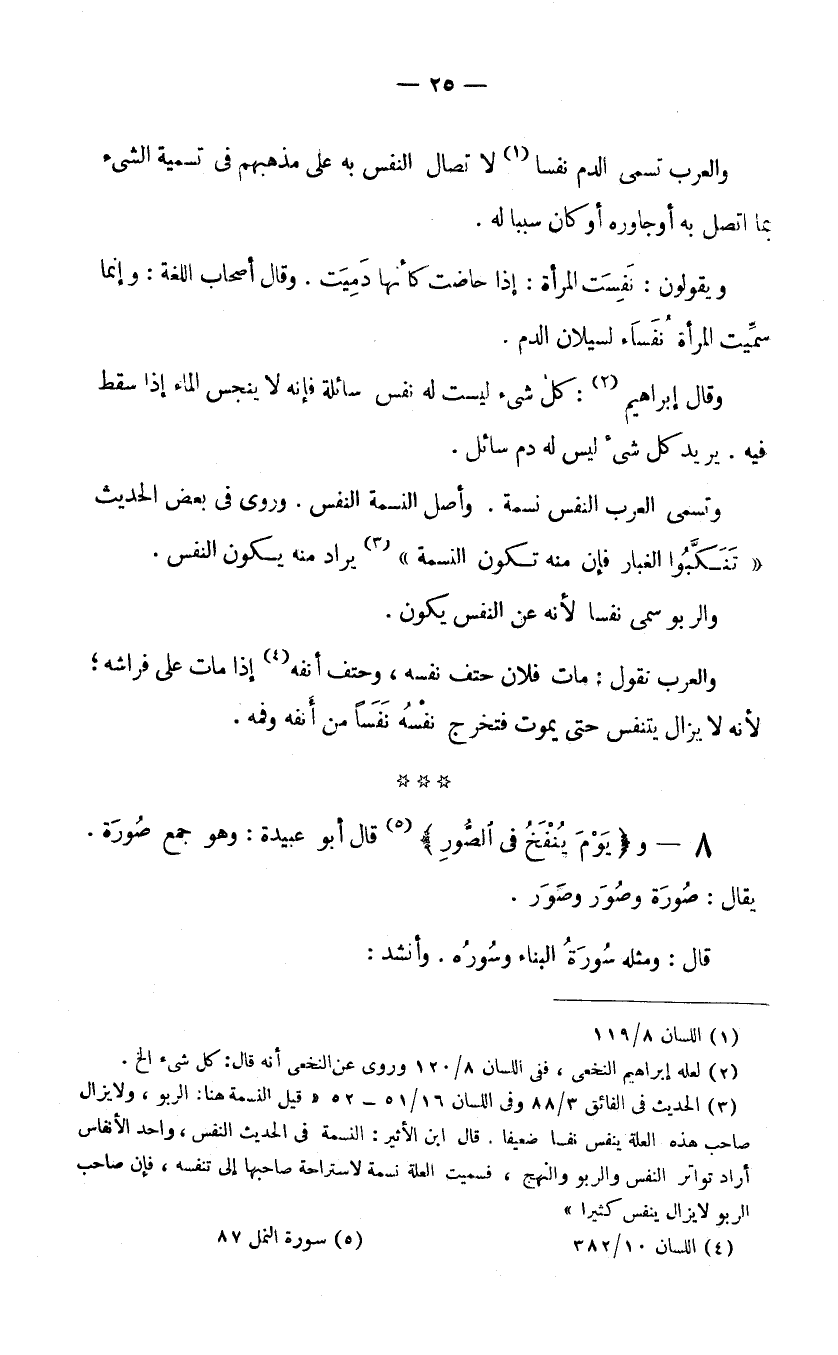 — ٢٥ —
والعرب تسمى الدم نفسا (١) لا تصال النفس به على مذهبهم فى تسمية الشىء
بما اتصل به أوجاوره أوكان سببا له .
ويقولون : نَفِسَت المرأة : إذا حاضت كأنها دَمِيَت . وقال أصحاب اللغة : وإنما
سمِّيت المرأة نُفَسَاء لسيلان الدم .
وقال إبراهيم (٢) : كل شىء ليست له نفس سائلة فإنه لا ينجس الماء إذا سقط
فيه . يريد كل شىء ليس له دم سائل .
وتسمى العرب النفس نسمة . وأصل النسمة النفس . وروى فى بعض الحديث
« تَنَكَّبُوا الغبار فإن منه تكون النسمة » (٣) يراد منه يكون النفس .
والربو سمى نفسا لأنه عن النفس يكون .
والعرب نقول : مات فلان حتف نفسه ، وحتف أنفه (٤) إذا مات على فراشه ؛
لأنه لا يزال يتنفس حتى يموت فتخرج نفْسُه نَفَسَاً من أَنفه وفمه .
* * *
٨ — و﴿ يَوْمَ يُنْفَخُ فى ٱلصُّورِ ﴾ (٥) قال أبو عبيدة : وهو جمع صُورَة .
يقال : صُورَة وصُوَر وصَوَر .
قال : ومثله سُورَةُ البناء وسُورُه . وأنشد :
(١) اللسان ١١٩/٨
(٢) لعله إبراهيم النخعى ، فنى اللسان ١٢٠/٨ وروى عن النخعى أنه قال: كل شىء الخ .
(٣) الحديث فى الفائق ٨٨/٣ وفى اللسان ٥١/١٦ ــ ٥٢ « قيل النسمة هنا: الربو ، ولايزال
صاحب هذه العلة ينفس نفسا ضعيفا . قال ابن الأثير : النسمة فى الحديث النفس ، واحد الأنفاس
أراد تواتر النفس والربو والنهج ، فسميت العلة نسمة لاستراحة صاحبها إلى تنفسه ، فإن صاحب
الربو لايزال ينفس كثيرا »
(٤) اللسان ٣٨٢/١٠ (٥) سورة النمل ٨٧